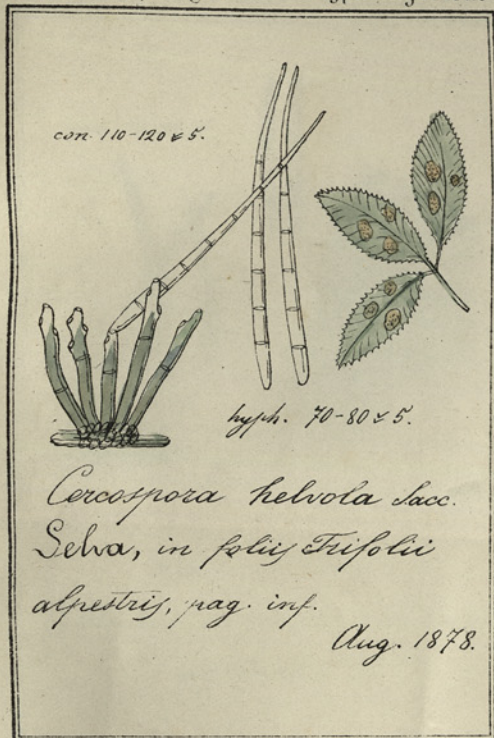 con. 110-120 ≈ 5.
hyph. 70-80 ≈ 5.
Cercospora helvola Sacc.
Selva, in foliis Trifolii
alpestris, pag. inf.
Aug. 1878.